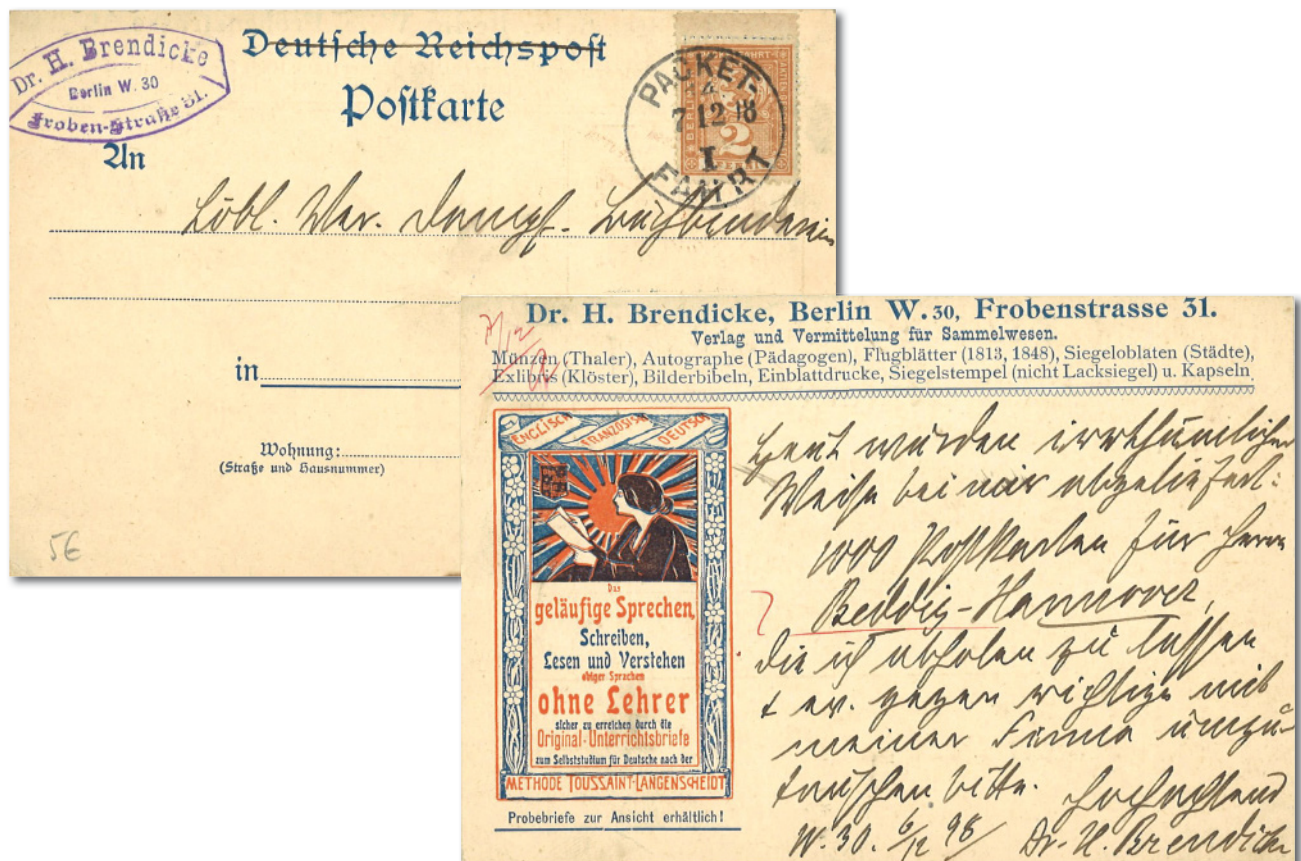 Dr. H. Brendicke
Berlin W. 30
Froben-Straße 31.
Deutsche Reichspost
Postkarte
PACKET-
7 12 98
I
FAHRT
2
An
Löbl. Ver. Dampf-Buchbinderei
in
Wohnung:
(Straße und Hausnummer)
5€
Dr. H. Brendicke, Berlin W. 30, Frobenstrasse 31.
Verlag und Vermittelung für Sammelwesen.
Münzen (Thaler), Autographe (Pädagogen), Flugblätter (1813, 1848), Siegeloblaten (Städte),
Exlibris (Klöster), Bilderbibeln, Einblattdrucke, Siegelstempel (nicht Lacksiegel) u. Kapseln
7/12
ENGLISCH FRANZÖSISCH DEUTSCH
Das
geläufige Sprechen,
Schreiben,
Lesen und Verstehen
obiger Sprachen
ohne Lehrer
sicher zu erreichen durch die
Original-Unterrichtsbriefe
zum Selbststudium für Deutsche nach der
METHODE TOUSSAINT-LANGENSCHEIDT
Probebriefe zur Ansicht erhältlich!
Heut wurden irrthümlicher
Weise bei mir abgeliefert:
1000 Postkarten für Herrn
Beddig-Hannover,
die ich abholen zu lassen
+ ev. gegen richtige mit
meiner Firma umzu-
tauschen bitte. Hochachtend
W. 30. 6/12 98 Dr. H. Brendicke